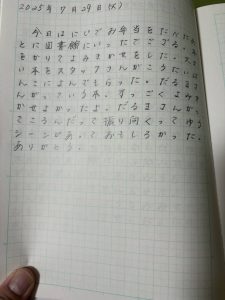 2025年7月29日(火)
今日はにじでお弁当をたべたあ
とに図書館にいったでござる。本
をかりてよみきかせをした。大き
い本をスタッフさんがこうたいば
んこによんでもらった。だるまさ
んがっていう本。すっごくよみき
かせよかったよ。だるまさんが、
でころんだって振り向くってゆう
シーンがあっておもしろかった。
ありがとう。